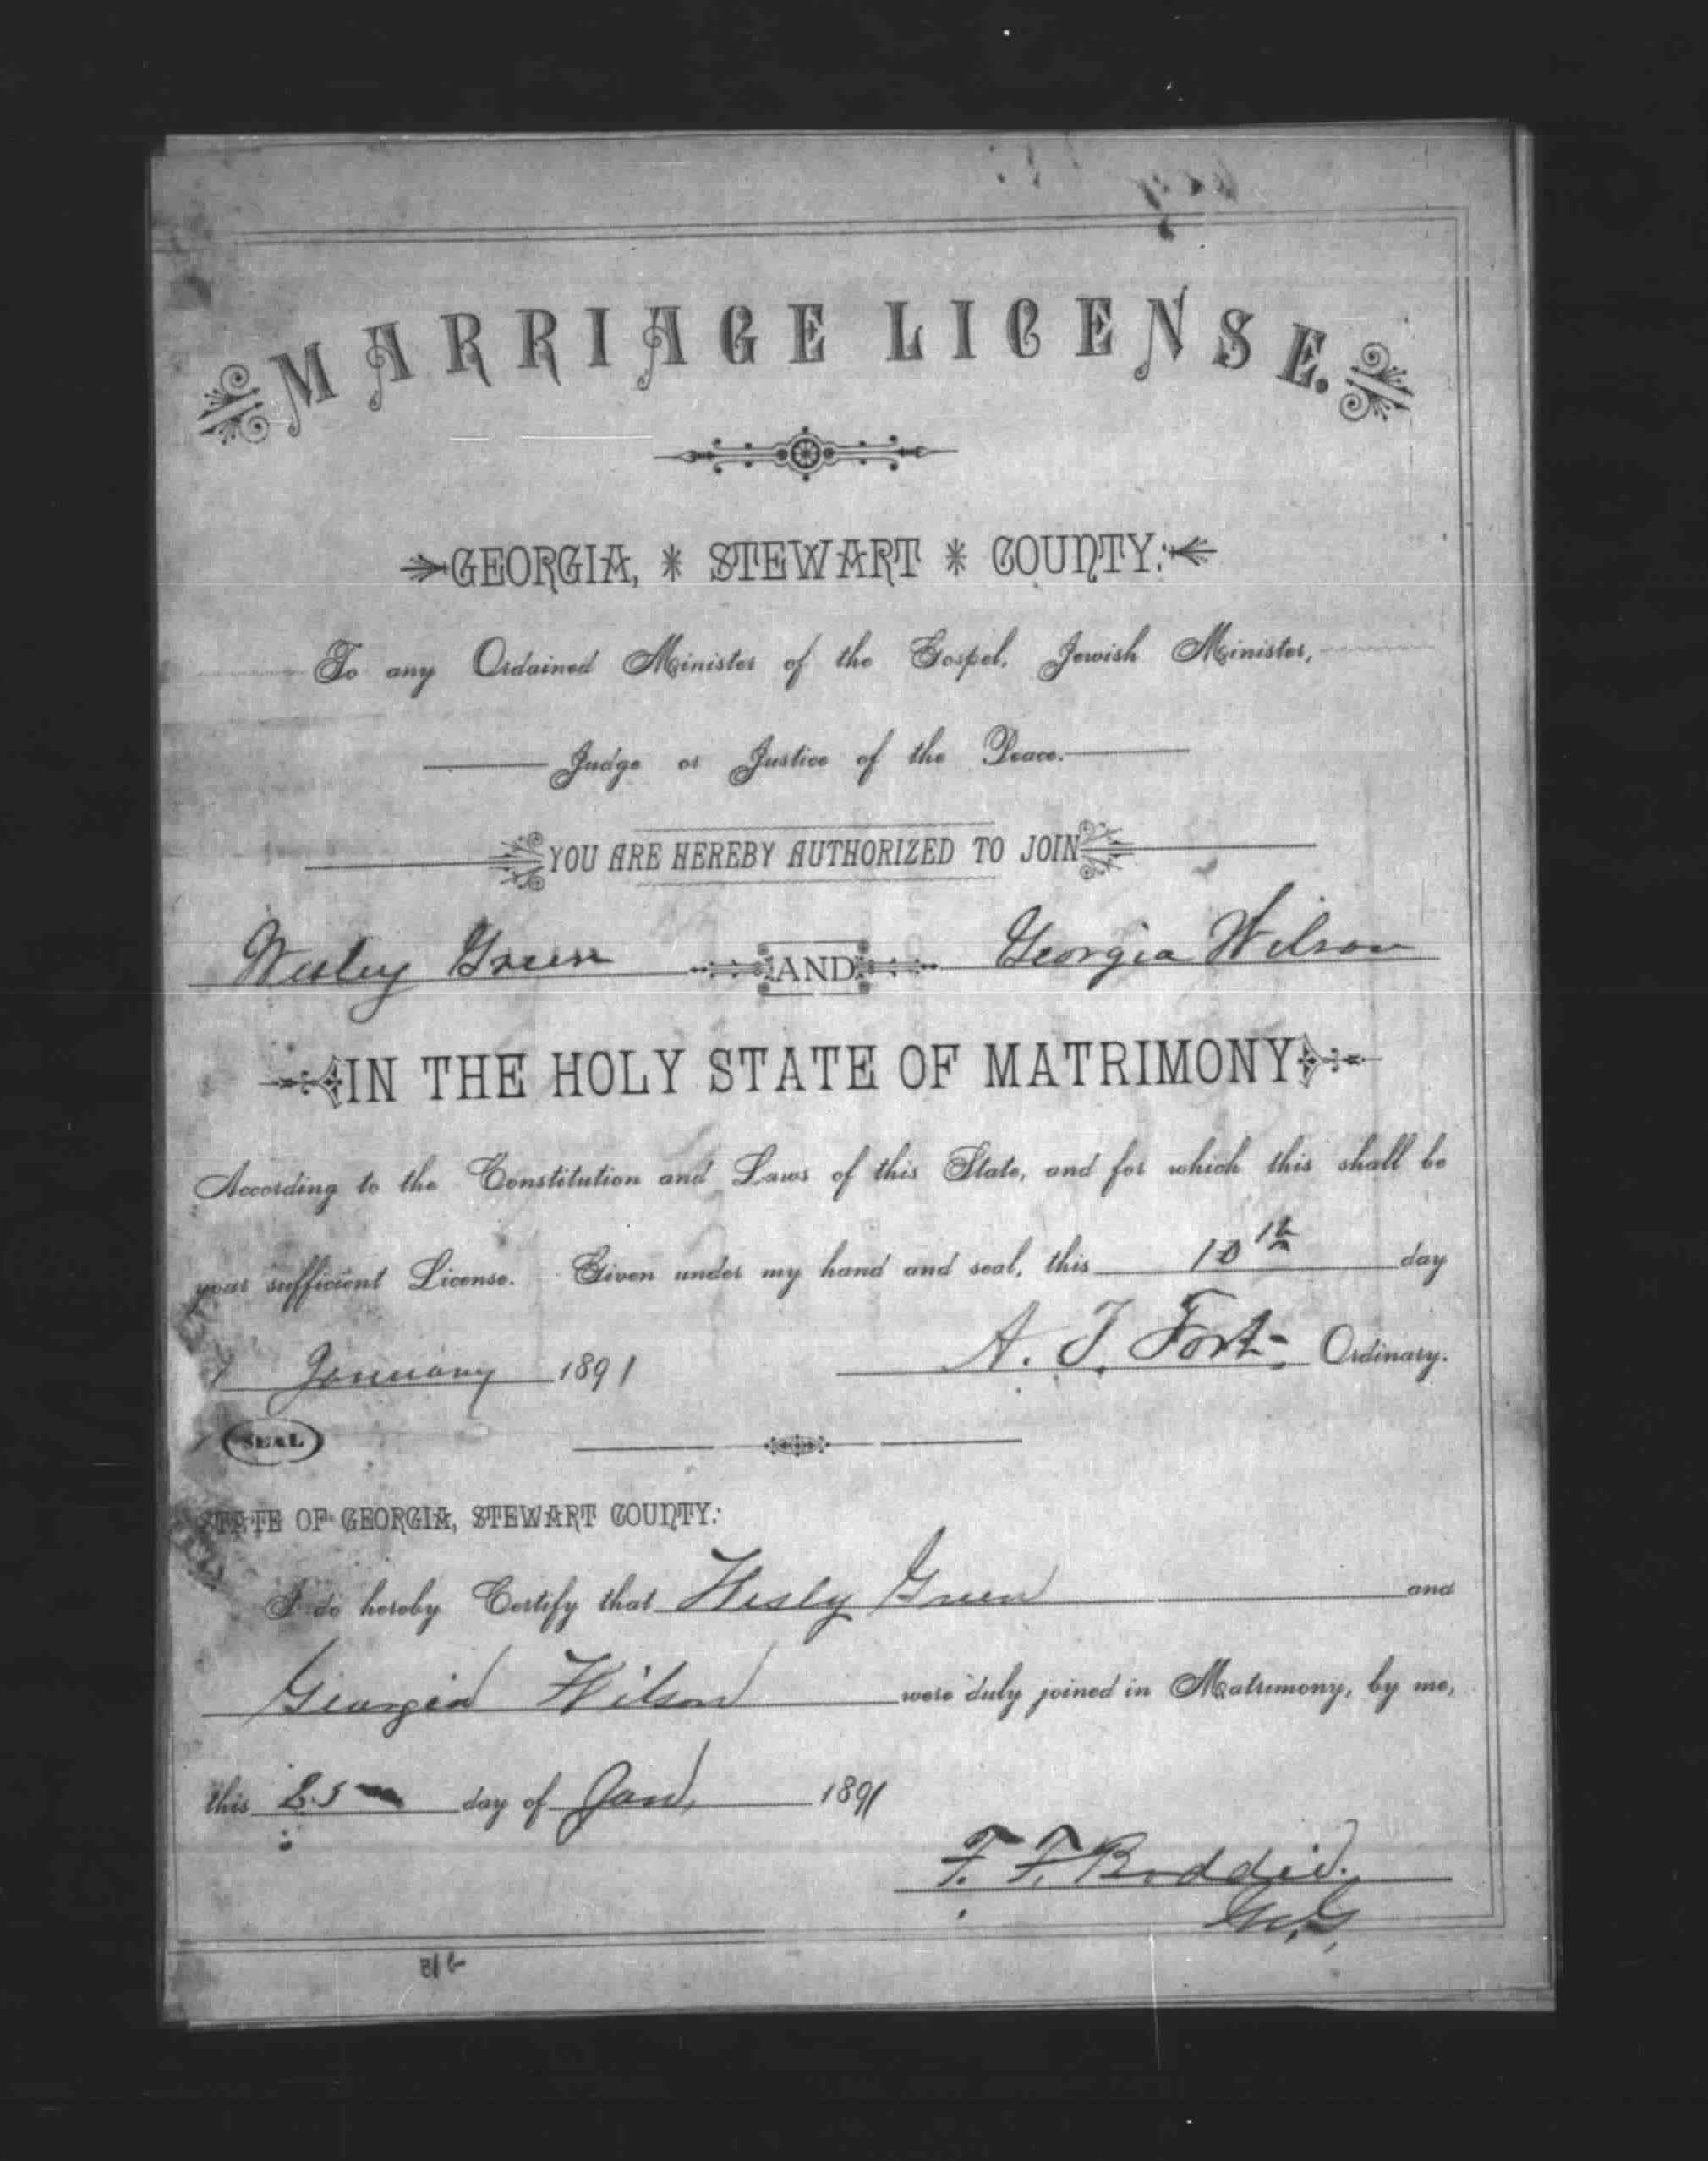 MARRIAGE LICENSE.
GEORGIA, * STEWART * COUNTY:
To any Ordained Minister of the Gospel, Jewish Minister,
Judge or Justice of the Peace.
YOU ARE HEREBY AUTHORIZED TO JOIN
Wesley Green AND Georgia Wilson
IN THE HOLY STATE OF MATRIMONY
According to the Constitution and Laws of this State, and for which this shall be
your sufficient License. Given under my hand and seal, this 10th day
January 1891 A. T. Fort Ordinary.
SEAL
STATE OF GEORGIA, STEWART COUNTY:
I do hereby Certify that Wesly Green and
Georgia Wilson were duly joined in Matrimony, by me,
this 25 day of Jan, 1891
F. F. Boddie.